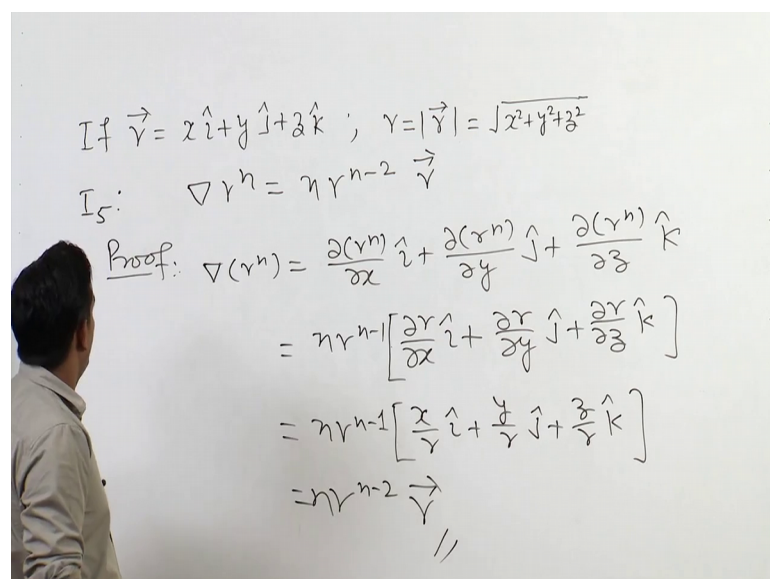 If r⃗ = x î + y ĵ + z k̂ ; r = |r⃗| = √(x²+y²+z²)
I₅: ∇rⁿ = n rⁿ⁻² r⃗
Proof: ∇(rⁿ) = ∂(rⁿ)/∂x î + ∂(rⁿ)/∂y ĵ + ∂(rⁿ)/∂z k̂
= n rⁿ⁻¹ [∂r/∂x î + ∂r/∂y ĵ + ∂r/∂z k̂]
= n rⁿ⁻¹ [x/r î + y/r ĵ + z/r k̂]
= n rⁿ⁻² r⃗
//